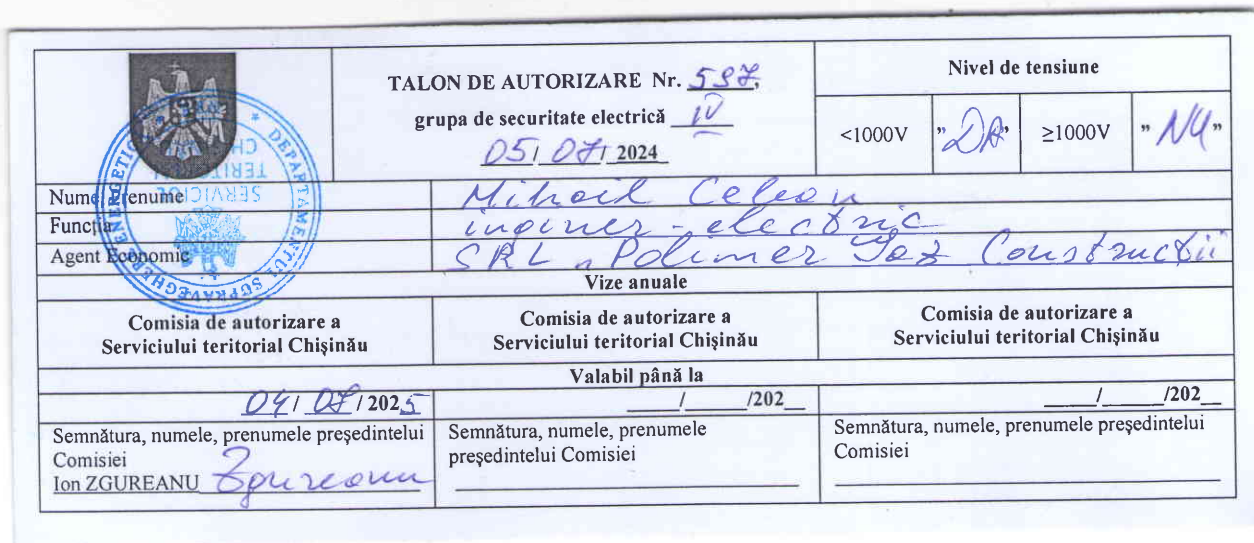 TALON DE AUTORIZARE Nr. 597,
grupa de securitate electrică IV
05/ 07/ 2024
Nivel de tensiune
<1000V "DA" ≥1000V "NU"
Nume, Prenume Mihail
Funcția inginer-electric
Agent Economic SRL „Polimer Gaz Construcții
Vize anuale
Comisia de autorizare a Serviciului teritorial Chișinău
Comisia de autorizare a Serviciului teritorial Chișinău
Comisia de autorizare a Serviciului teritorial Chișinău
Valabil până la
04/ 07/ 2025
___/______/202__
___/______/202__
Semnătura, numele, prenumele președintelui Comisiei
Ion ZGUREANU Zgureanu
Semnătura, numele, prenumele președintelui Comisiei
Semnătura, numele, prenumele președintelui Comisiei
DEPARTAMENTUL SUPRAVEGHERE ENERGETICĂ
SERVICIUL
TERITORIAL